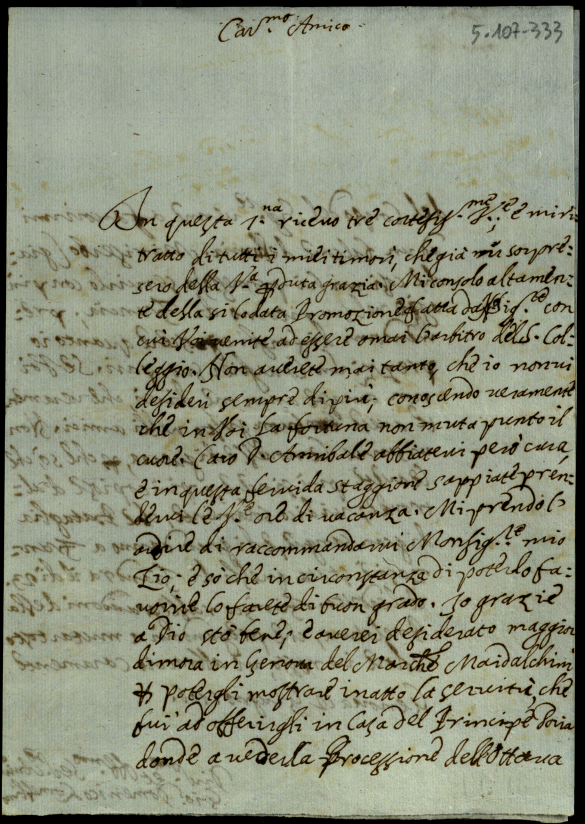 Car.mo Amico
5-107-333
In questa 1.na ricevo tre cortesis.me V.re e mi ri=
tratto di tutti i miei timori, che già mi sorpre=
sero della V.a perduta grazia. Mi consolo altamen=
te della sì lodata Promozione fatta da
cui venite ad essere omai l'arbitro del S. Col=
leggio. Non averete mai tanto, che io non vi
desideri sempre di più; conoscendo veramente
che in Voi la fortuna non muta punto il
cuore. Caro D. Annibale abbiatevi però cura,
e in questa fervida staggione sappiate pren=
dervi le V.e ore di vacanza. Mi prendo l'
ardire di raccommandarvi Monsig.re mio
Zio; e so che in circonstanza di poterlo fa=
vorire lo farete di buon grado. Io grazie
a Dio stò bene, e averei desiderato maggior
dimora in Genova del Marchè Maidalchini
per potergli mostrare in atto la servitù, che
fui ad offerirgli in Casa del Principe Doria
donde a veder la Processione dell'Ottava